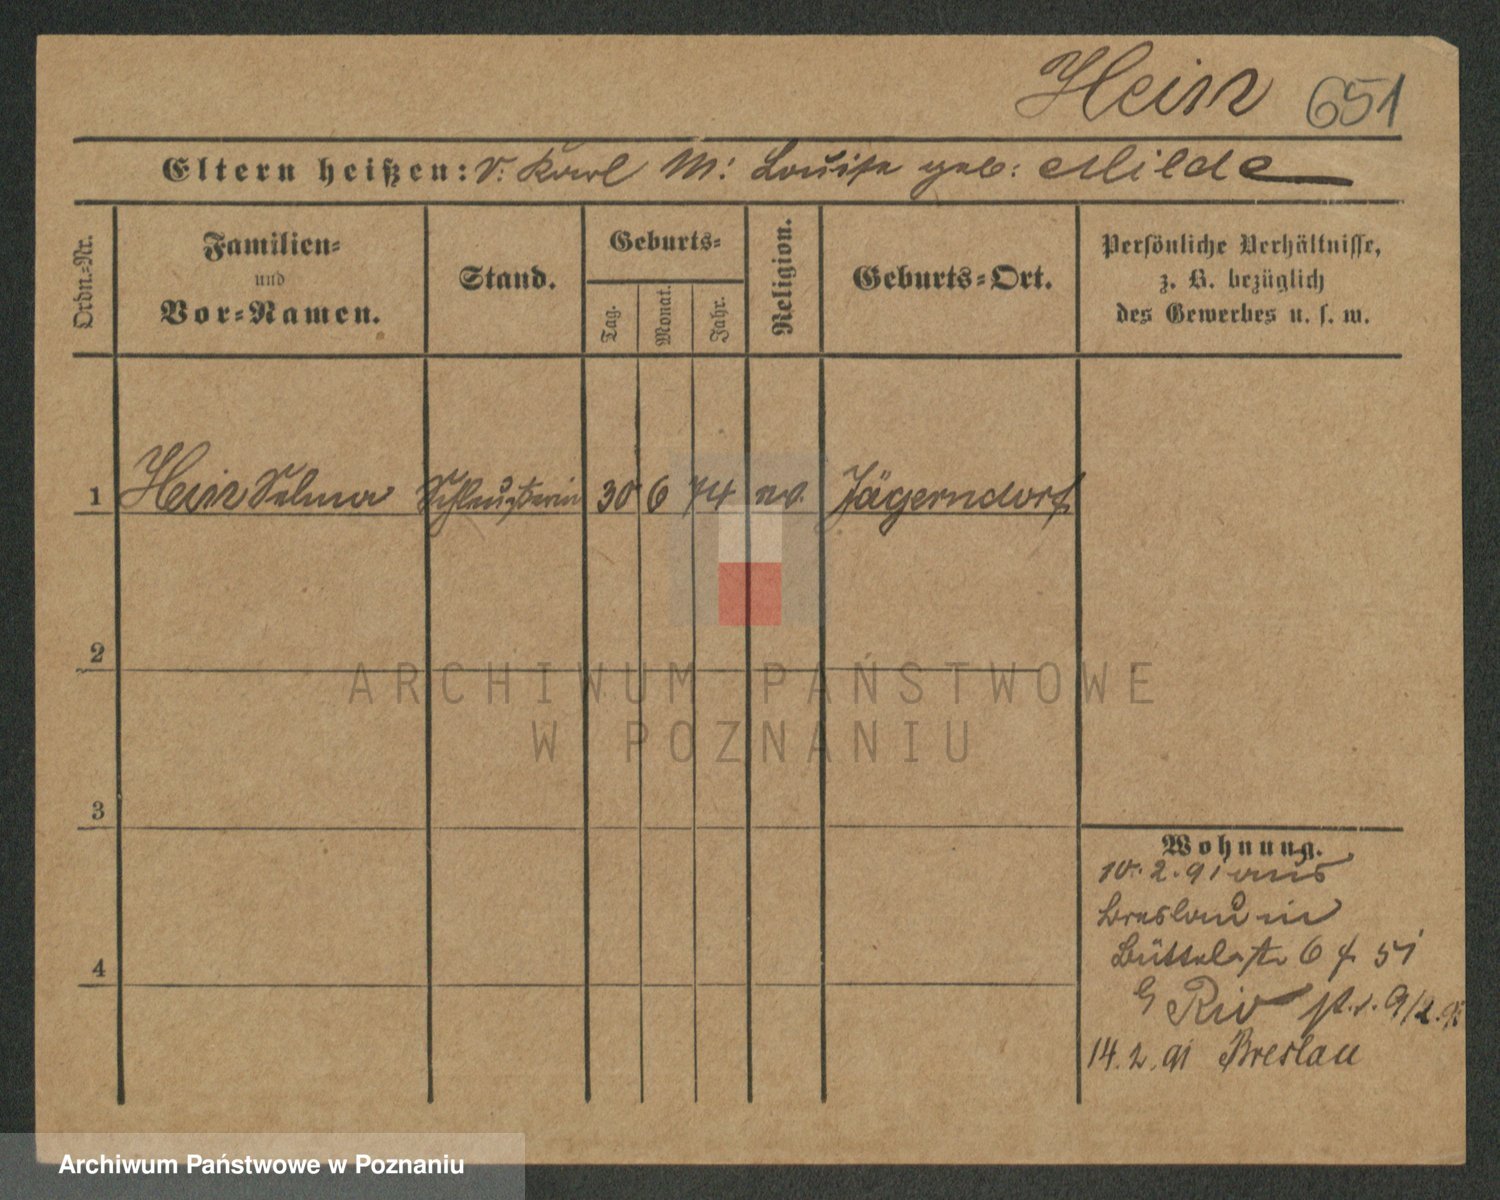 Hein 651
Eltern heißen: V: Karl M: Louise geb: Milde
Ordn.-Nr.
Familien-
und
Vor-Namen.
Stand.
Geburts-
Tag.
Monat.
Jahr.
Religion.
Geburts-Ort.
Persönliche Verhältnisse,
z. B. bezüglich
des Gewerbes u. s. w.
1 Hein Selma 30 6 74 ev. Jägerndorf
2
3
4
Wohnung.
10.2.91 aus
Breslau in
Büttelstr 6 f 51
14.2.91 Breslau
ARCHIWUM PAŃSTWOWE
W POZNANIU
Archiwum Państwowe w Poznaniu